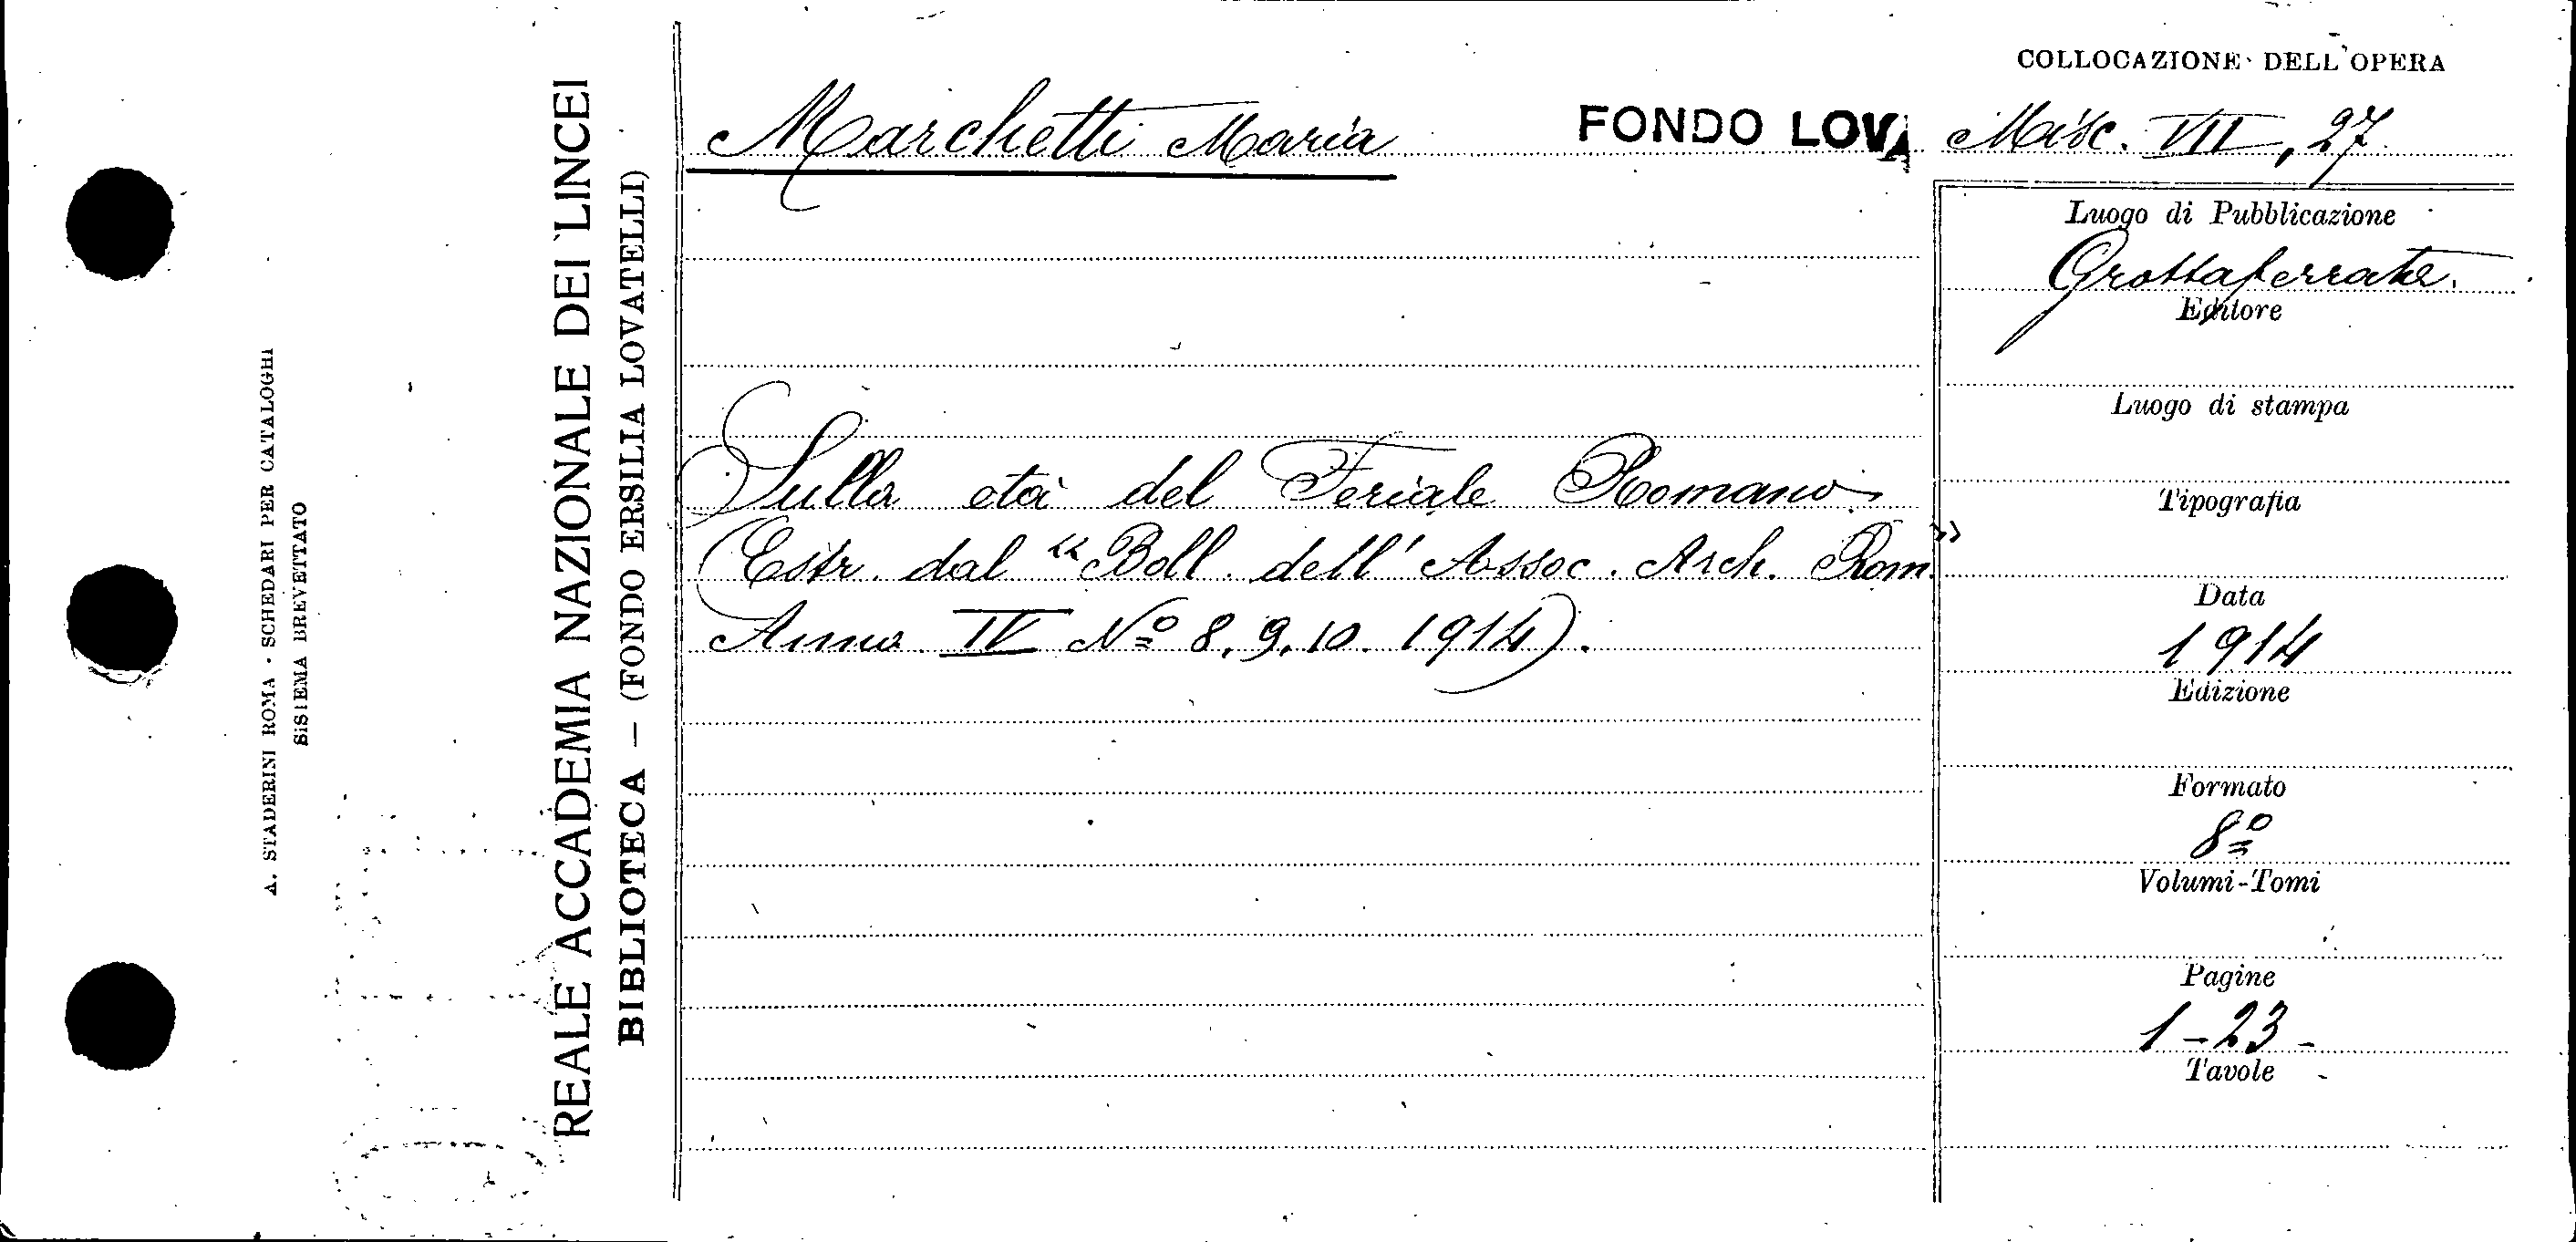 COLLOCAZIONE DELL'OPERA
Marchetti Maria FONDO LOVA Misc. VII, 27
Sulla età del Feriale Romano
(Estr. dal "Boll. dell' Assoc. Arch. Rom."
Anno IV Nº 8, 9, 10. 1914).
Luogo di Pubblicazione
Grottaferrata.
Editore
Luogo di stampa
Tipografia
Data
1914
Edizione
Formato
8º
Volumi-Tomi
Pagine
1-23-
Tavole
REALE ACCADEMIA NAZIONALE DEI LINCEI
BIBLIOTECA — (FONDO ERSILIA LOVATELLI)
A. STADERINI ROMA - SCHEDARI PER CATALOGHI
SISTEMA BREVETTATO